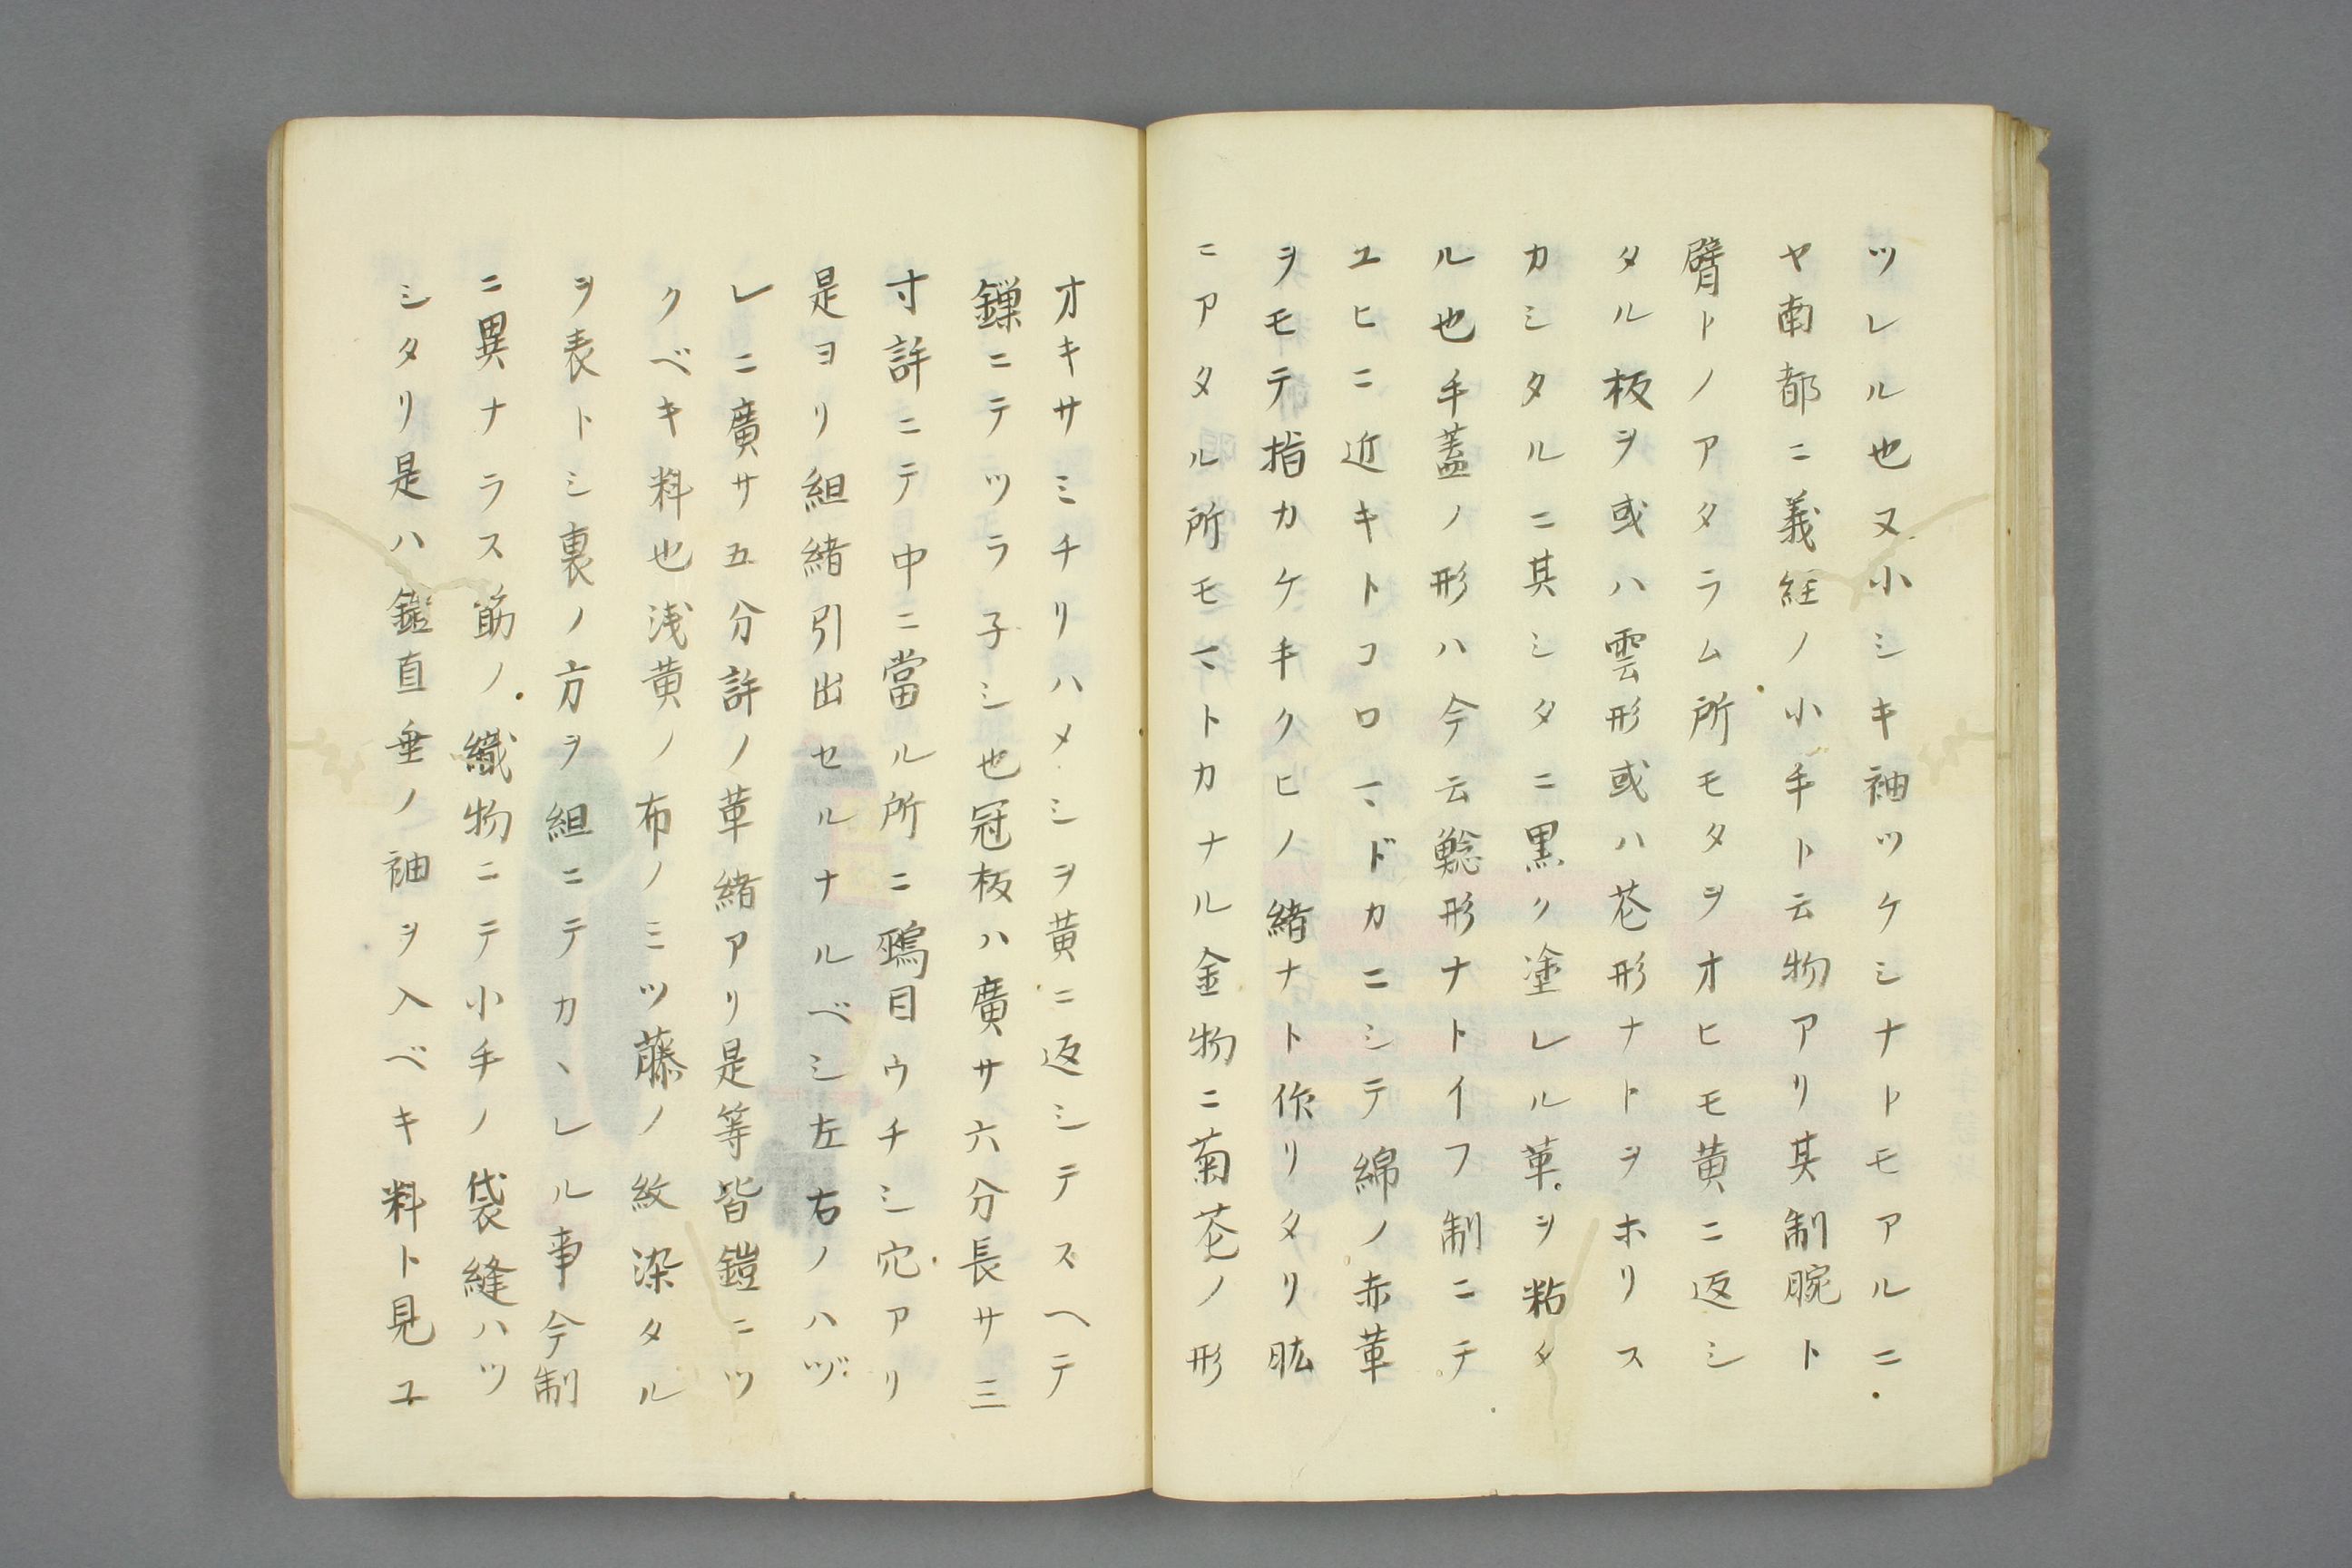 ツレル也又小シキ袖ツケシナトモアルニ
ヤ南都ニ義経ノ小手ト云物アリ其制腕ト
臂トノアタラム所モタヲオヒモ黄ニ返シ
タル板ヲ或ハ雲形或ハ花形ナトヲホリス
カシタルニ其シタニ黒ク塗レル革ヲ粘タ
ル也手蓋ノ形ハ今云鯰形ナトイフ制ニテ
ユヒニ近キトコロマドカニシテ綿ノ赤革
ヲモテ指カケ手クヒノ緒ナト作リタリ肱
ニアタル所モマトカナル金物ニ菊花ノ形
オキサミチリハメシヲ黄ニ返シテスヘテ
鏁ニテツラ子シ也冠板ハ廣サ六分長サ三
寸許ニテ中ニ當ル所ニ鵐目ウチシ穴アリ
是ヨリ組緒引出セルナルベシ左右ノハヅ
レニ廣サ五分許ノ革緒アリ是等皆鎧ニツ
クベキ料也浅黄ノ布ノミツ藤ノ紋染タル
ヲ表トシ裏ノ方ヲ組ニテカヽレル事今制
ニ異ナラス筋ノ織物ニテ小手ノ袋縫ハツ
シタリ是ハ鎧直垂ノ袖ヲ入ベキ料ト見ユ